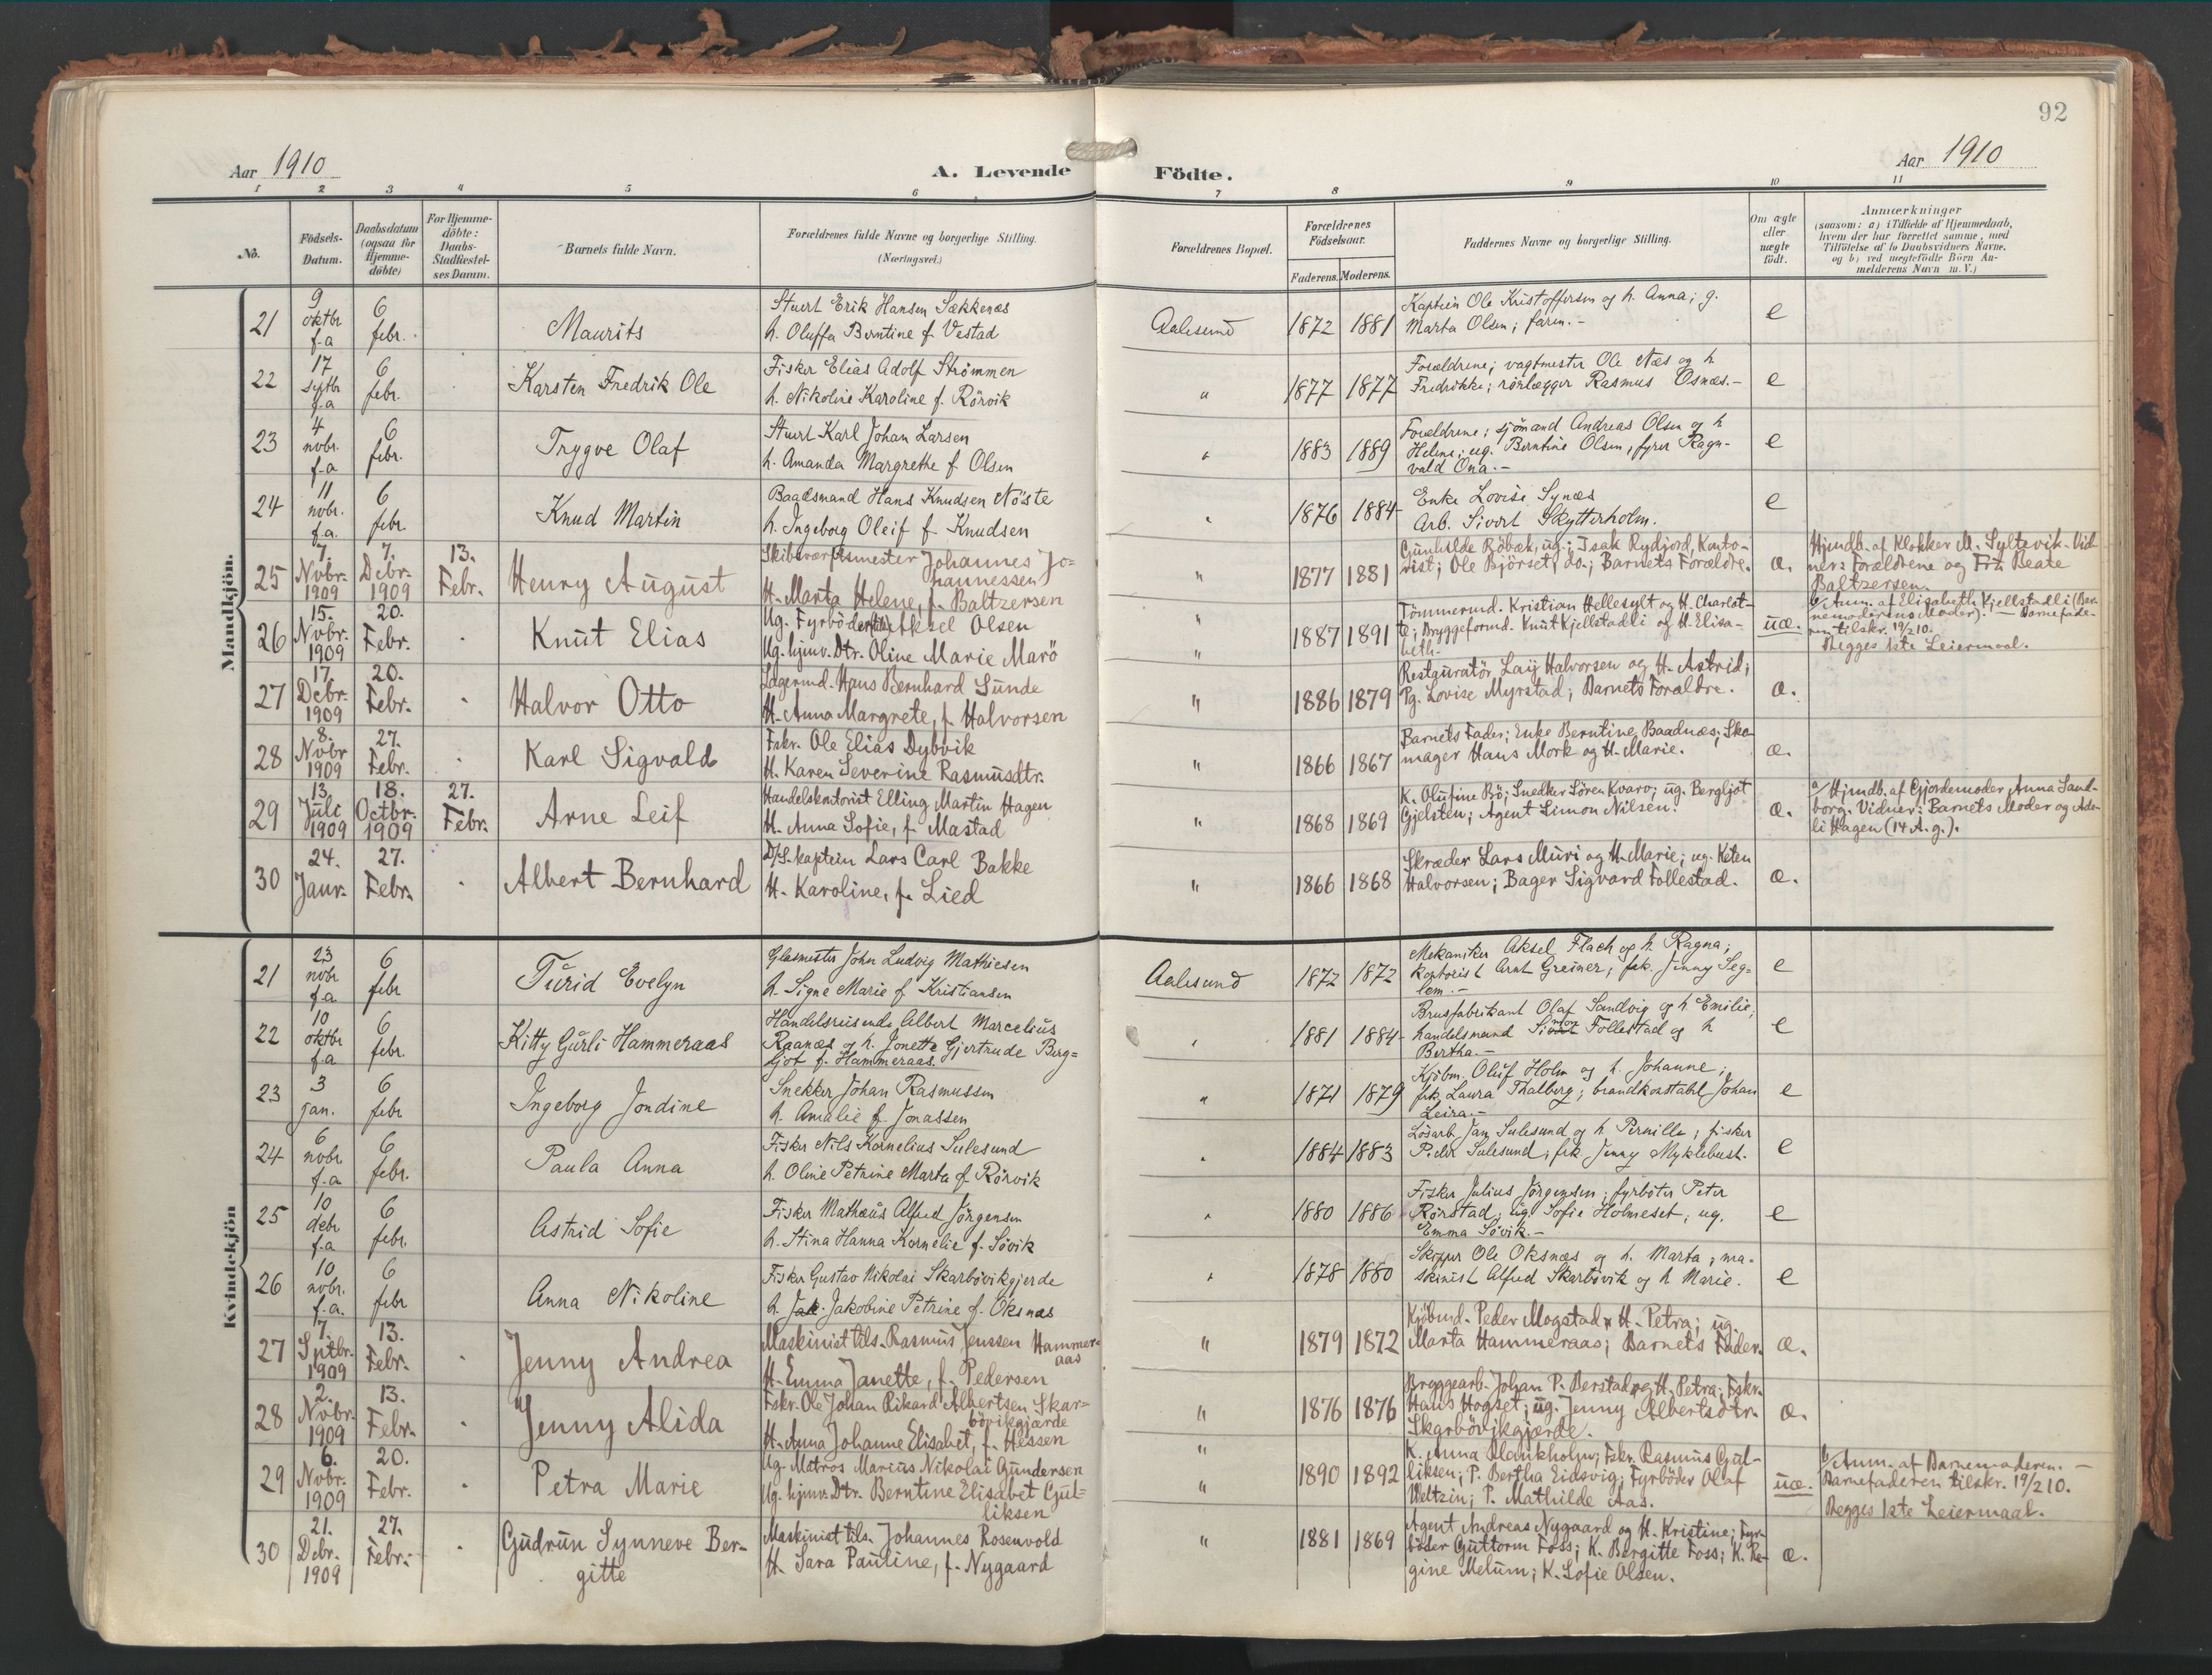 92
Aar 1910
A. Levende Födte.
Aar 1910
1 2 3 4 5 6 7 8 9 10 11
No.
Födsels-Datum.
Daabsdatum (ogsaa for Hjemme-döbte)
For Hjemme-döbte: Daabs-Stadfæstel-ses Datum.
Barnets fulde Navn.
Forældrenes fulde Navne og borgerlige Stilling. (Næringsvei.)
Forældrenes Bopæl.
Forældrenes Födselsaar.
Faderens. Moderens.
Faddernes Navne og borgerlige Stilling.
Om ægte eller uægte födt.
Anmærkninger
(saasom: a) i Tilfælde af Hjemmedaab,
hvem der har forrettet samme, med
Tilföielse af to Daabsvidners Navne,
og b) ved uægtefödte Börn An-
melderens Navn m. V.)
Mandkjön.
21
9 oktbr f.a
6 febr.
Maurits
Stuert Erik Hansen Sækkenæs
h. Oluffa Berntine f. Vestad
Aalesund
1872 1881
Kaptein Ole Kristoffersen og h. Anna; g.
Marta Olsen; faren.-
e
22
17 septbr f.a
6 febr.
Karsten Fredrik Ole
Fisker Elias Adolf Strömmen
h. Nikoline Karoline f. Rörvik
"
1877 1877
Forældrene; vagtmester Ole Næs og h
Fredrikke; rörlægger Rasmus Osnæs.-
e
23
4 nobr. f.a
6 febr.
Trygve Olaf
Stuert Karl Johan Larsen
h. Amanda Margrethe f. Olsen
"
1883 1889
Forældrene; sjömand Andreas Olsen og h
Helene; ug. Berntine Olsen, fyrer Ragn-
vald Ona.-
e
24
11 nobr. f.a.
6 febr.
Knud Martin
Baadsmand Hans Knudsen Nöste
h. Ingeborg Oleif f. Knudsen
"
1876 1884
Enke Lovise Synæs
Arb. Sivert Skytterholm.
e
25
7. Nvbr. 1909
7. Debr. 1909
13. Febr.
Henry August
Skibsværftsmester Johannes Jo-
hannessen
H. Marta Helene, f. Baltzersen
"
1877 1881
Gunhilde Röbæk, ug.; Isak Rydjord, Konto-
rist; Ole Björset, do.; Barnets Forældre.
æ.
Hjmdb. af Klokker M. Syltevik. Vid-
ner: Forældrene og Frk Beate
Baltzersen.
26
15. Nvbr. 1909
20. Febr.
Knut Elias
Ug. Fyrböder Aksel Olsen
Ug. hjmv. Dtr. Oline Marie Marö
"
1887 1891
Tömmermd. Kristian Hellesylt og H. Charlot-
te; Bryggeformd. Knut Kjellstadli og H. Elisa-
beth.
uæ.
b/ Anm. af Elisabeth Kjellstadli (Bar-
nemoderens Moder). - Barnefade-
ren tilskr. 19/2 10.
Begges 1ste Leiermaal.
27
17. Debr. 1909
20. Febr.
Halvor Otto
Lagermd. Hans Bernhard Sunde
H. Anna Margrete, f. Halvorsen
"
1886 1879
Restauratör Laij Halvorsen og H. Astrid;
Pg. Lovise Myrstad; Barnets Forældre.
æ.
28
8. Nvbr 1909
27. Febr.
Karl Sigvald
Fskr. Ole Elias Dybvik
H. Karen Severine Rasmusdtr.
"
1866 1867
Barnets Fader; Enke Berntine Baadnæs; Sko-
mager Hans Mork og H. Marie.
æ.
29
13. Juli 1909
18. Octbr. 1909
27. Febr.
Arne Leif
Handelskontorist Elling Martin Hagen
H. Anna Sofie, f. Mastad
"
1868 1869
K. Olufine Bö; Snedker Sören Kvarv; ug. Bergljot
Gjelsten; Agent Simon Nilsen.
æ.
a/ Hjmdb. af Gjordemoder Anna Sand-
borg. Vidner: Barnets Moder og Ade-
li Hagen (14 A. g.).
30
24. Janr.
27. Febr.
Albert Bernhard
D/S.kaptein Lars Carl Bakke
H. Karoline, f. Lied
"
1866 1868
Skræder Lars Muri og H. Marie; ug. Keten
Halvorsen; Bager Sigvard Follestad.
æ.
Kvindekjön
21
23 nobr f.a
6 febr
Turid Evelyn
Glasmester John Ludvig Mathiesen
h. Signe Marie f. Kristiansen
Aalesund
1872 1872
Mekaniker Aksel Flach og h. Ragna;
kontorist Arnt Greiner; frk. Jenny Seg-
lem.-
e
22
10 oktbr f.a
6 febr.
Kitty Gurli Hammeraas
Handelsreisende Albert Marcelius
Raanæs og h. Jonette Gjertrude Berg-
ljot f. Hammeraas.
"
1881 1884
Brusfabrikant Olaf Sandvig og h Emilie,
handelsmand Follestad og h
Bertha.-
e
23
3 jan.
6 febr
Ingeborg Jondine
Snekker Johan Rasmussen
h. Amalie f. Jonassen
"
1871 1879
Kjöbm. Oluf Holm og h. Johanne;
frk. Laura Thalberg; brandkonstabel Johan
Leira.-
e
24
6 nobr. f.a
6 febr.
Paula Anna
Fisker Nils Kornelius Sulesund
h. Oline Petrine Marta f. Rörvik
"
1884 1883
Lösarb. Jan Sulesund og h Pernille; fisker
Peder Sulesund; frk Jenny Myklebust.
e
25
10 debr f.a
6 febr.
Astrid Sofie
Fisker Mathæus Alfred Jörgensen
h. Stina Hanna Kornelie f. Sövik
"
1880 1886
Fisker Julius Jörgensen; fyrböter Peter
Rörstad; ug. Sofie Holmeset; ug.
Emma Sövik.-
e
26
10 nobr. f.a.
6 febr
Anna Nikoline
Fisker Gustav Nikolai Skarbövikgjerde
h. Jak. Jakobine Petrine f. Oksnæs
"
1878 1880
Skipper Ole Oksnæs og h. Marta; ma-
skinist Alfred Skarbövik og h Marie.
e
27
7. Sptbr. 1909
13. Febr.
Jenny Andrea
Maskinist tils. Rasmus Jenssen Hammer-
aas
H. Emma Janette, f. Pedersen
"
1879 1872
Kjöbmd. Peder Mogstad H. Petra; ug.
Marta Hammeraas; Barnets Fader.
æ.
28
2. Nvbr. 1909
13. Febr.
Jenny Alida
Fskr. Ole Johan Rikard Albertsen Skar-
bövikgjærde
H. Anna Johanne Elisabet, f. Hessen
"
1876 1876
Bryggearb. Johan P. Berstad og H. Petra; Fskr.
Hans Hogset; ug. Jenny Albertsdtr.
Skarbövikgjærde.
æ.
29
6. Nvbr. 1909
20. Febr.
Petra Marie
Ug. Matros Marius Nikolai Gundersen
Ug. hjmv. Dtr. Berntine Elisabet Gul-
liksen
"
1890 1892
K. Anna Blankholm; Fskr. Rasmus Gul-
liksen; P. Bertha Eidsvig; Fyrböder Olaf
Weltzin; P. Mathilde Aas.
uæ.
b/ Anm. af Barnemoderen. -
Barnefaderen tilskr. 19/2 10.
Begges 1ste Leiermaal.
30
21. Debr. 1909
27. Febr.
Gudrun Synneve Ber-
gitte
Maskinist tils. Johannes Rosenvold
H. Sara Pauline, f. Nygaard
"
1881 1869
Agent Andreas Nygaard og H. Kristine; Fyr-
böder Guttorm Foss; K. Bergitte Foss; K. Re-
gine Melum; K. Sofie Olsen.
æ.